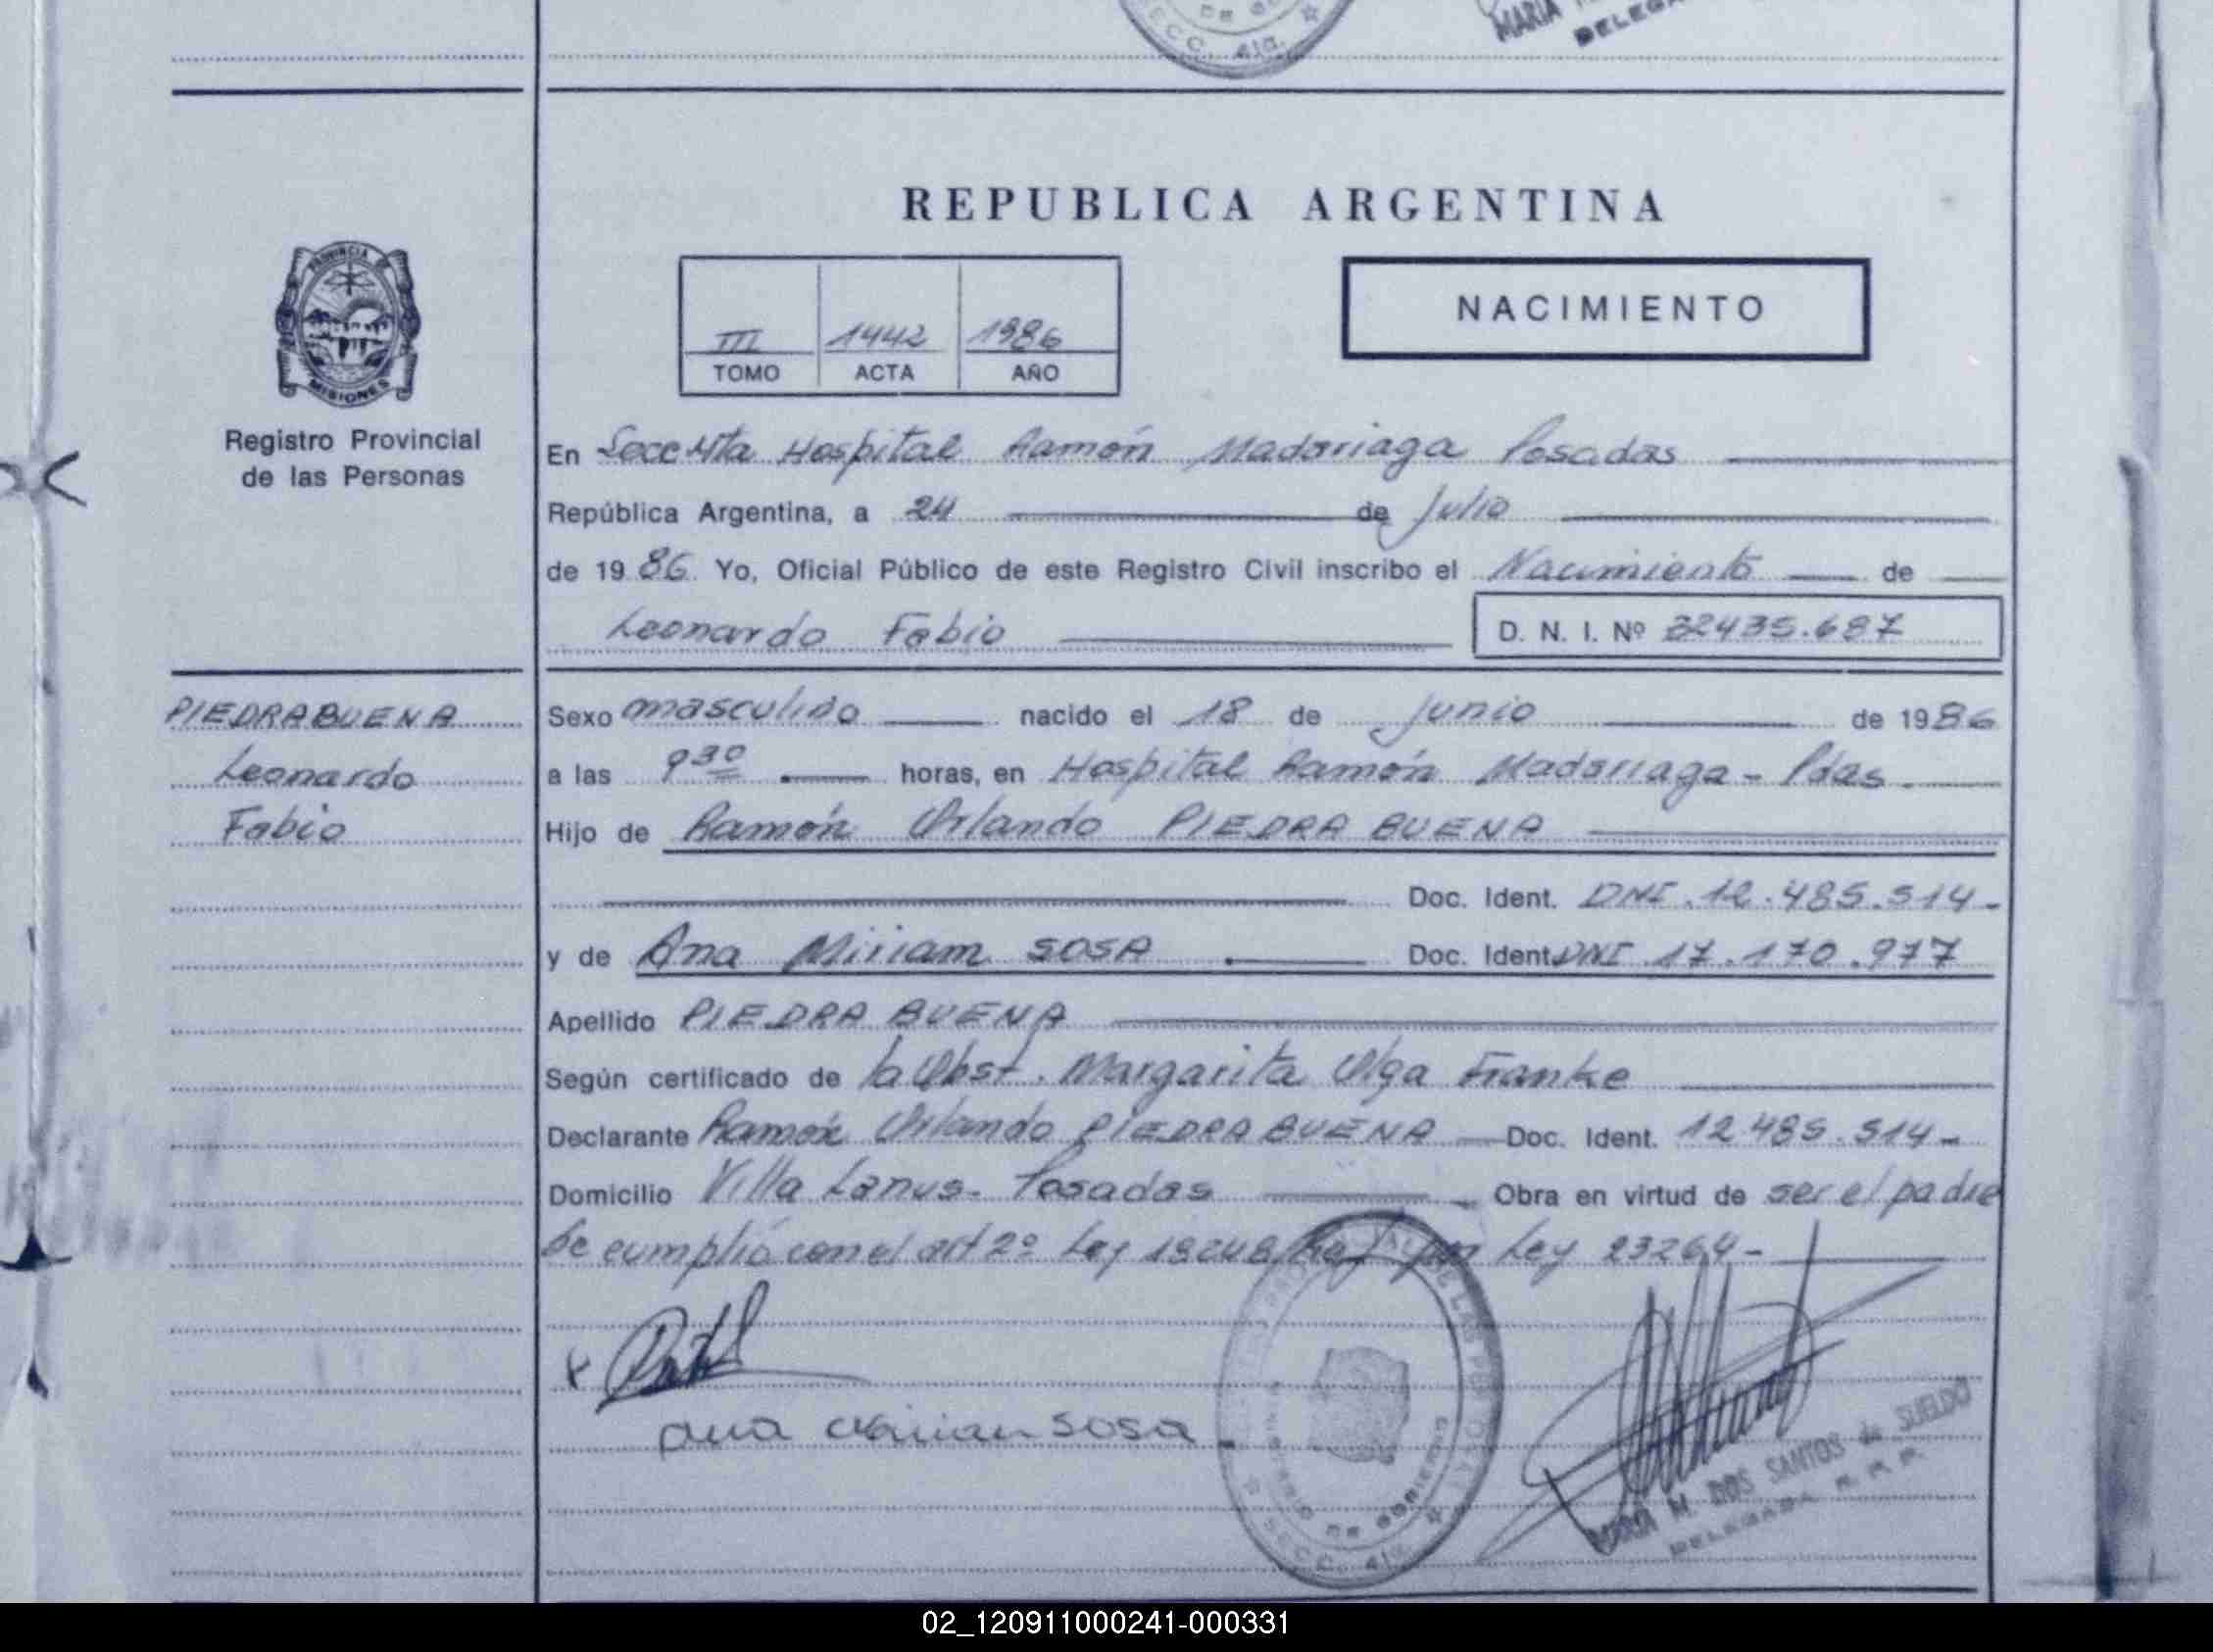 DE
SECC. 4ta.
MARIA
DELEGA
REPUBLICA ARGENTINA
PROVINCIA DE
MISIONES
Registro Provincial
de las Personas
III 1442 1986
TOMO ACTA AÑO
NACIMIENTO
En Secc 4ta Hospital Ramón Madariaga Posadas
República Argentina, a 24 de Julio
de 1986. Yo, Oficial Público de este Registro Civil inscribo el Nacimiento de
Leonardo Fabio D. N. I. Nº 32435.687
PIEDRABUENA
Leonardo
Fabio
Sexo masculino nacido el 18 de junio de 1986
a las 9 30 horas, en Hospital Ramón Madariaga - Pdas.
Hijo de Ramón Orlando PIEDRA BUENA
Doc. Ident. DNI. 12.485.514-
y de Ana Miriam SOSA Doc. Ident. DNI 17.170.977
Apellido PIEDRA BUENA
Según certificado de la Obst. Margarita Olga Franke
Declarante Ramón Orlando PIEDRA BUENA Doc. Ident. 12485.514-
Domicilio Villa Lanus- Posadas Obra en virtud de ser el padre
Se cumplió con el art 2º Ley 18248 Ley 23264-
ana Mirian SOSA
DE LAS PERSONAS
MINISTERIO DE GOBIERNO
SECC. 4ta.
MARIA M. DOS SANTOS de SUELDO
DELEGADA R. P. P.
02_120911000241-000331